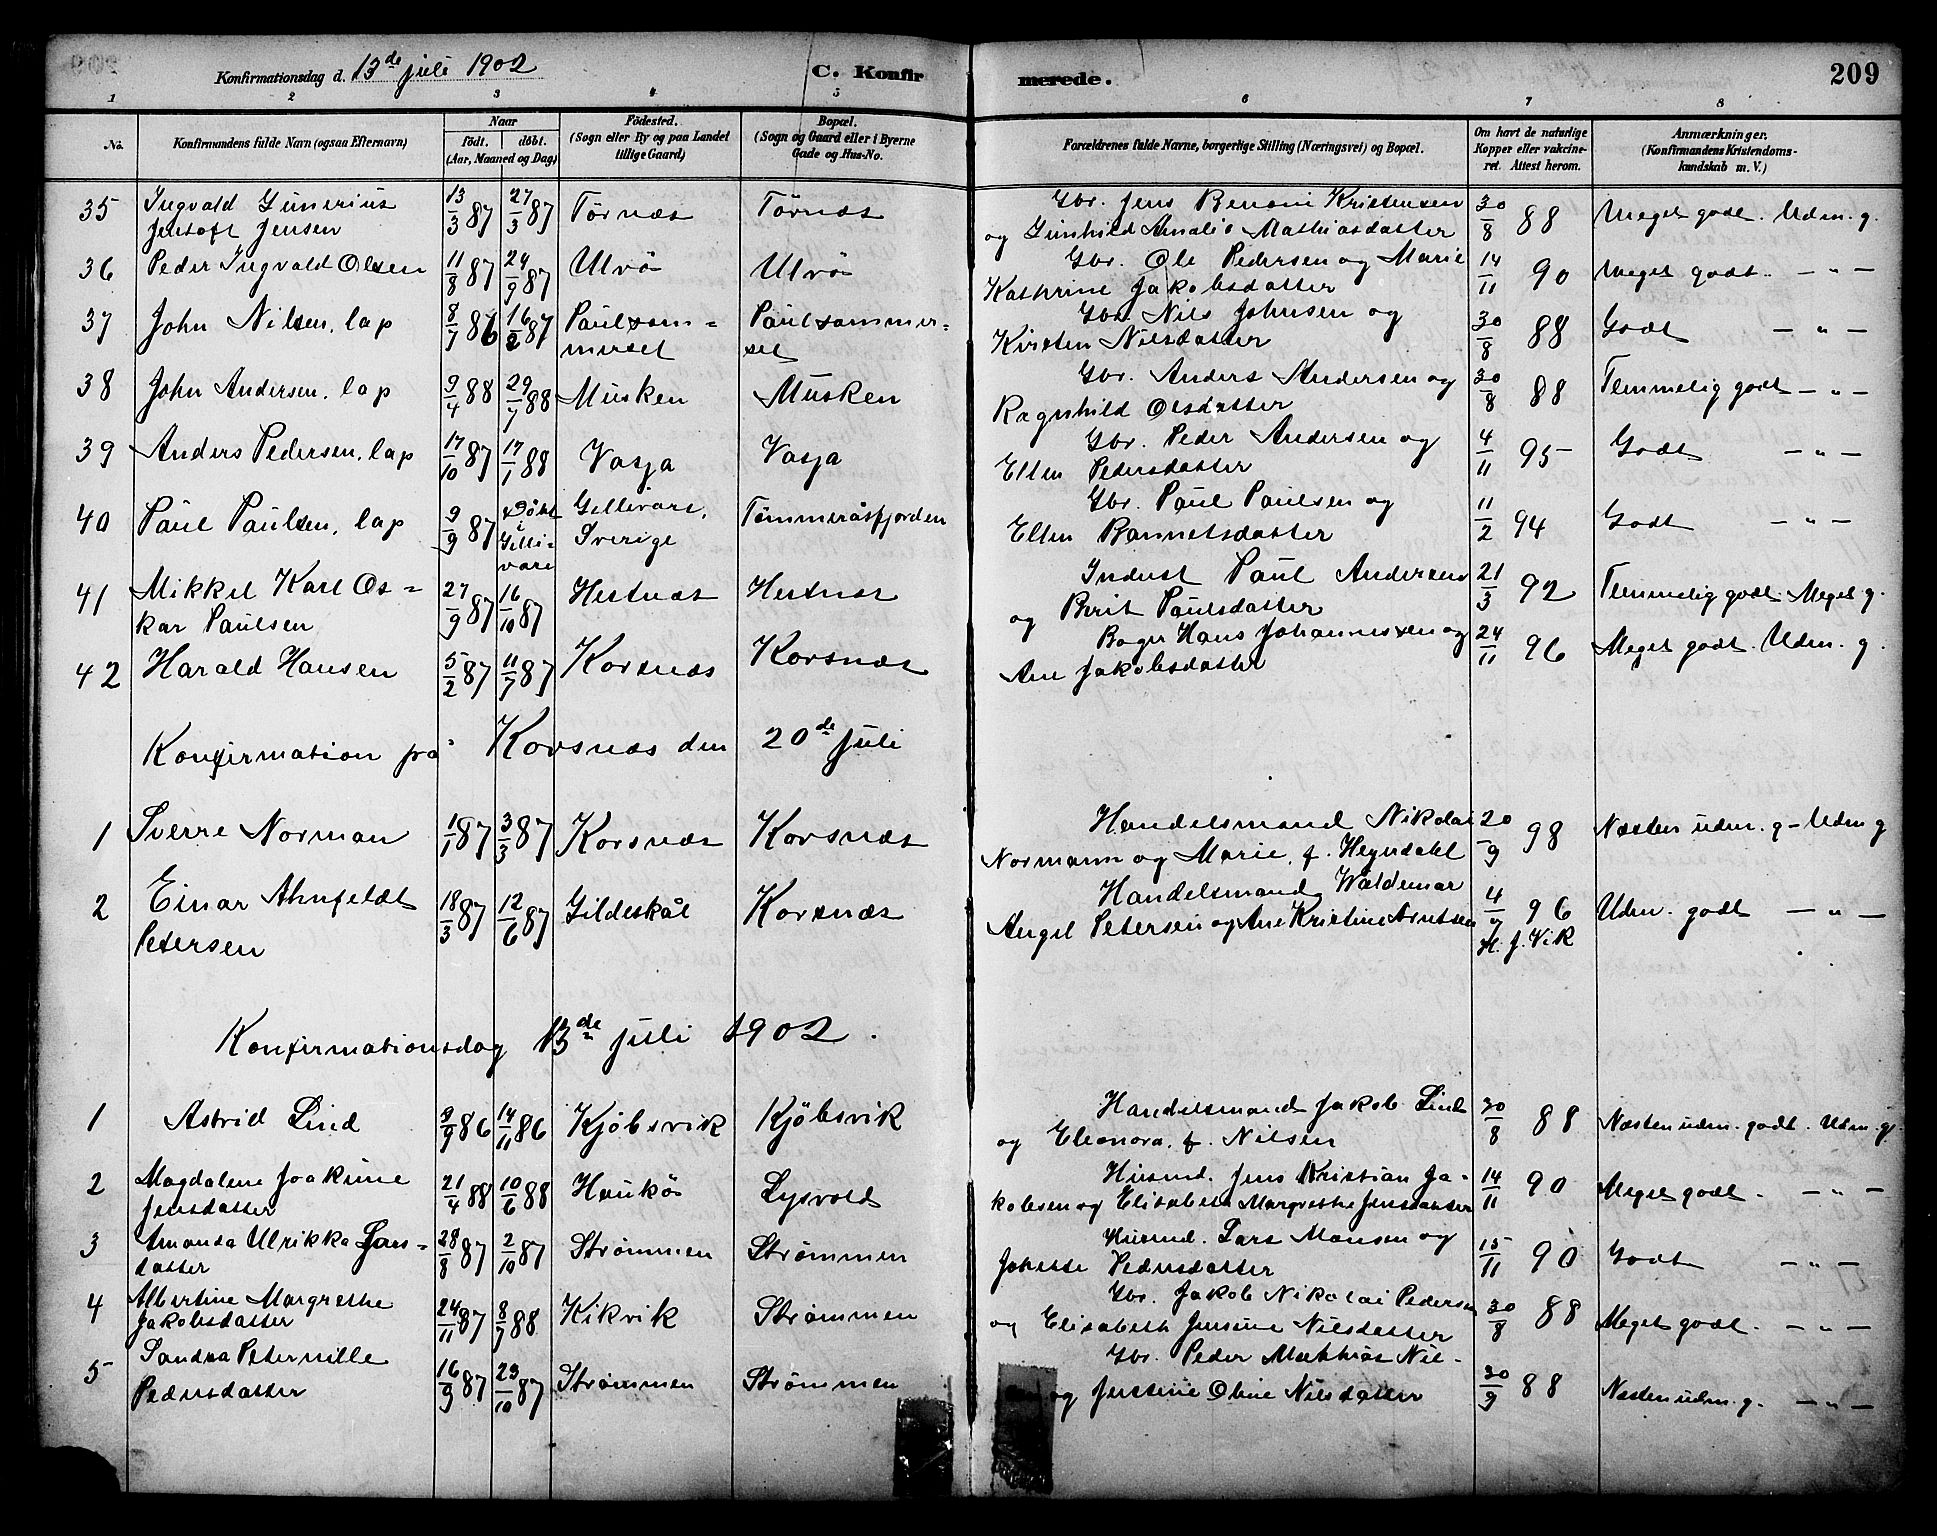 Konfirmationsdag d. 13de juli 1902 C. Konfirmerede. 209
1 2 3 4 5 6 7 8
No. Konfirmandens fulde Navn (ogsaa Efternavn) Naar født. døbt. (Aar, Maaned og Dag) Fødested. (Sogn eller By og paa Landet tillige Gaard) Bopæl. (Sogn og Gaard eller i Byerne Gade og Hus-No. Forældrenes fulde Navne, borgerlige Stilling (Næringsvei) og Bopæl. Om havt de naturlige Kopper eller vakcineret. Attest herom. Anmærkninger. (Konfirmandens Kristendomskundskab m. V.)
35 Ingvald Gunerius 13/3 87 27/3 87 Tørnæs Tørnæs Gbr. Jens Benoni Kristensen 30/8 88 Meget godt. Udm. g.
Jentoft Jensen og Gunhild Amalie Mathiasdatter
36 Peder Ingvald Olsen 11/8 87 24/9 87 Ulvö Ulvö Gbr. Ole Pedersen og Marie 14/11 90 Meget godt. — " —
Kathrine Jakobsdatter
37 John Nilsen, lap 8/7 86 16/2 87 Paulsom= Paulsommer- Gbr. Nils Johnsen og 30/8 88 Godt — " —
merset set Kirsten Nilsdatter
38 John Andersen, lap 9/4 88 29/7 88 Musken Musken Gbr. Anders Andersen og 30/8 88 Temmelig godt — " —
Ragnhild Olsdatter
39 Anders Pedersen, lap 17/10 87 17/1 88 Vasja Vasja Gbr. Peder Andersen og 4/11 95 Godt — " —
Ellen Pedersdatter
40 Paul Paulsen, lap 9/9 87 Döbt i Gellivare Gellivare, Tømmeråsfjorden Gbr. Paul Paulsen og 11/2 94 Godt — " —
Sverige Ellen Bannetsdatter
41 Mikkel Karl Os= 27/9 87 16/10 87 Hestnæs Hestnæs Inderst Paul Andersen 21/3 92 Temmelig godt. Meget g.
kar Paulsen og Berit Paulsdatter
42 Harald Hansen 5/2 87 11/7 87 Korsnæs Korsnæs Hans Johannessen og 24/11 96 Meget godt. Udm. g.
Ane Jakobsdatter
Konfirmation på Korsnæs den 20de juli
1 Sverre Norman 1/1 87 3/3 87 Korsnæs Korsnæs Handelsmand Nikolai 20/9 98 Næsten udm. g— Udm g
Normann og Marie, f. Heyndahl
2 Einar Ahnfeldt 18/3 87 12/6 87 Gildeskål Korsnæs Handelsmand Waldemar 4/7 96 Udm. godt — " —
Petersen Angel Petersen og Ane Kristine Arntsen H. J. Vik
Konfirmationsdag 13de juli 1902.
1 Astrid Lind 9/9 86 14/11 86 Kjöbsvik Kjöbsvik Handelsmand Jakob Lind 30/8 88 Næsten udm. godt. Udm. g.
og Eleonora, f. Nilsen
2 Magdalene Joakime 21/4 88 10/6 88 Haukö Lysvold Husmd. Jens Kristian Ja- 14/11 90 Meget godt. — " —
Jensdatter kobsen og Elisabeth Margrethe Jensdatter
3 Amanda Ulrikka Lars= 28/8 87 2/10 87 Strømmen Strømmen Husmd. Lars Monsen og 15/11 90 Godt — " —
datter Johette Pedersdatter
4 Albertine Margrethe 24/11 87 8/7 88 Kikvik Strømmen Gbr. Jakob Nikolai Pedersen 30/8 88 Meget godt. — " —
Jakobsdatter og Elisabeth Jensine Nilsdatter
5 Sandra Peternille 16/9 87 23/10 87 Strømmen Strømmen Gbr. Peder Mathias Nil- 30/9 88 Næsten udm. g. — " —
Pedersdatter og Justine Oline Nilsdatter